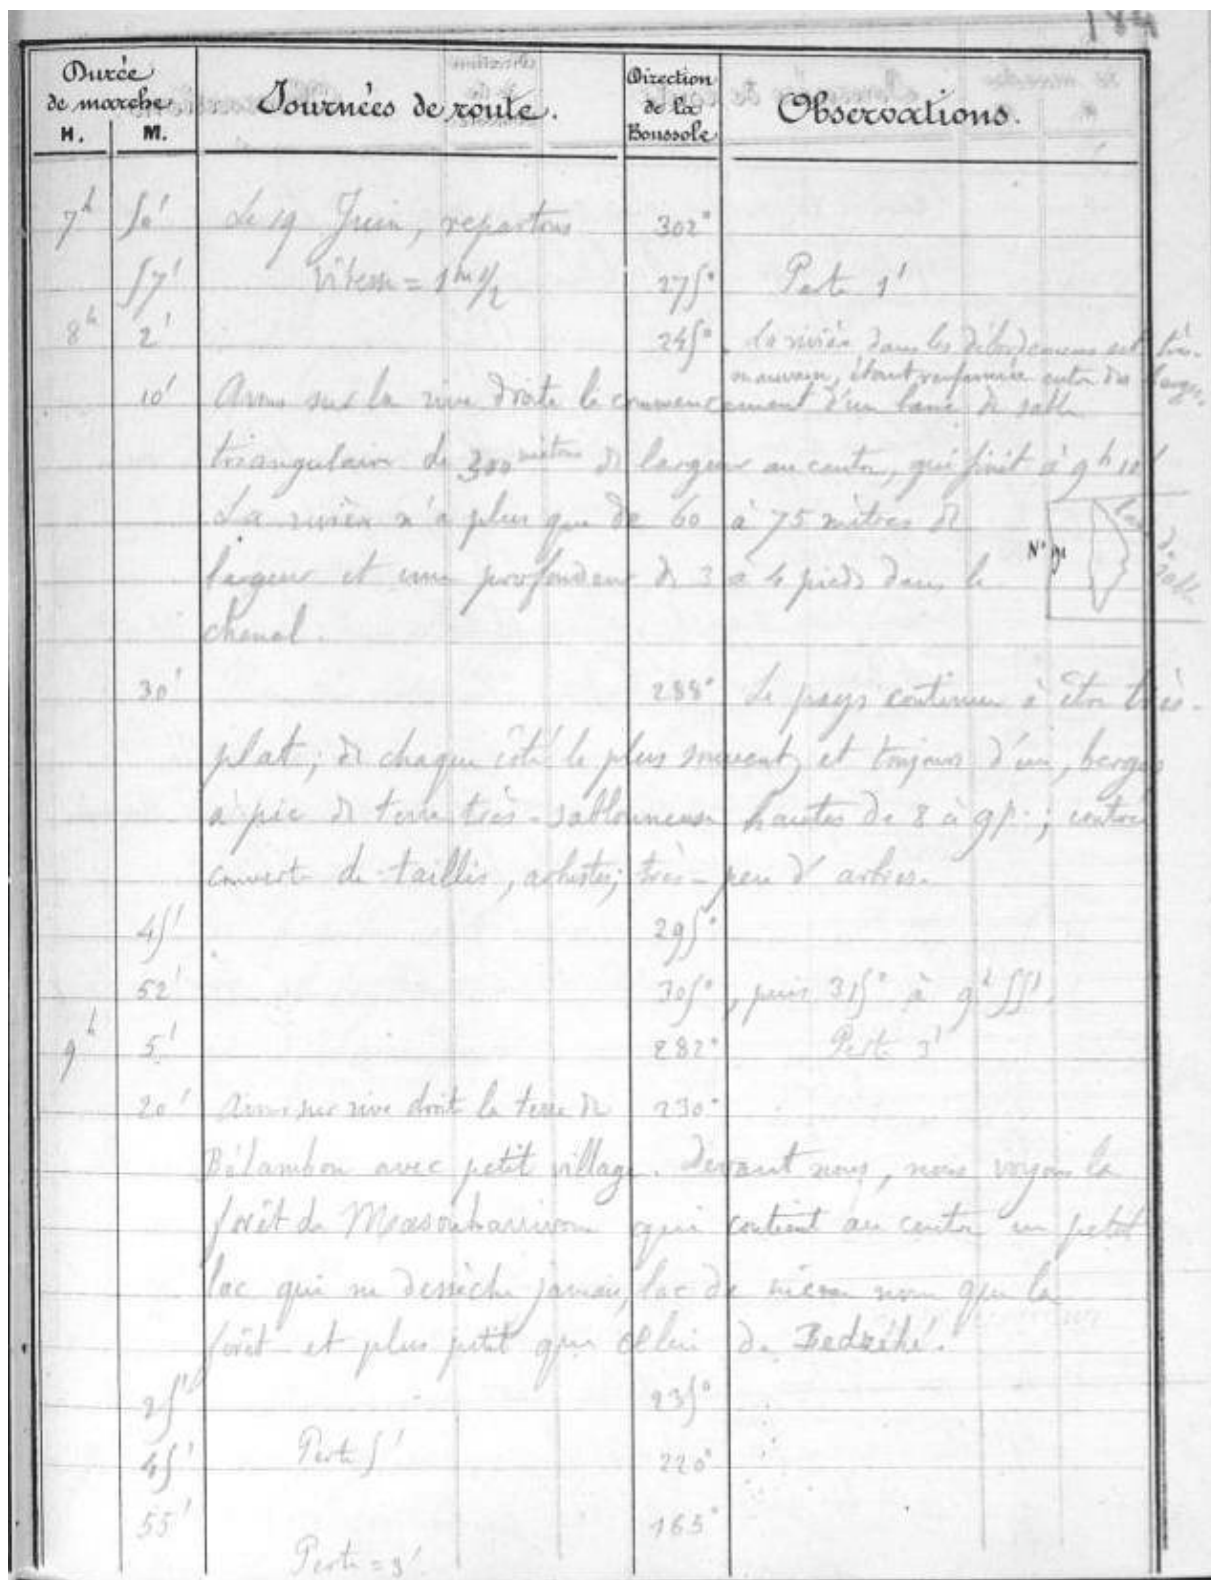 184
Durée de marche
H. M.
Journées de route.
Direction de la Boussole
Observations.
7h 50' Le 19 Juin, repartons 302°
57' Vitesse = 1m 1/2 275° Perte 1'
8h 2' 245° La rivière dans les débordements est très-
mauvaise, étant renfermée entre des berges
10' Avons sur la rive droite le commencement d'un banc de sable
triangulaire de 300 mètres de largeur au centre, qui finit à 9h 10'
La rivière n'a plus que de 60 à 75 mètres de
largeur et une profondeur de 3 à 4 pieds dans le
chenal.
N° 91
banc de sable
30' 288° Le pays continue à être très-
plat; de chaque côté le plus souvent, et toujours d'un, berges
à pic de terre très-sablonneuse hautes de 8 à 9 p.; contrée
couverte de taillis, arbustes; très-peu d'arbres.
45' 295°
52' 305°, puis 315° à 9h 55'.
9h 5' 282° Perte 3'
20' Avons sur rive droite la terre de 230°
Bétambou avec petit village. Devant nous, nous voyons la
forêt de Masouarivou qui contient au centre un petit
lac qui ne dessèche jamais, lac de même nom que la
forêt et plus petit que celui de Bedzéhé.
25' 235°
45' Perte 5' 220°
55' 165°
Perte = 3'